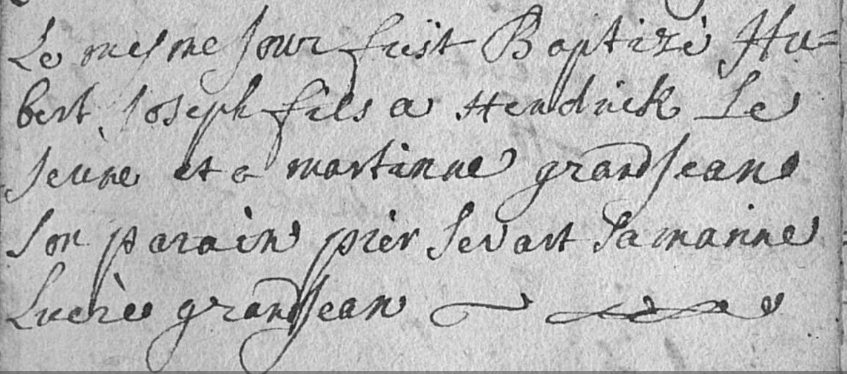 Le mesme Jour fuït Baptizé Hu=
bert Joseph fils a Hendrick Le
Jeune et a martinne grandJean
son parain pier Servart sa marinne
Lucrèe grandJean